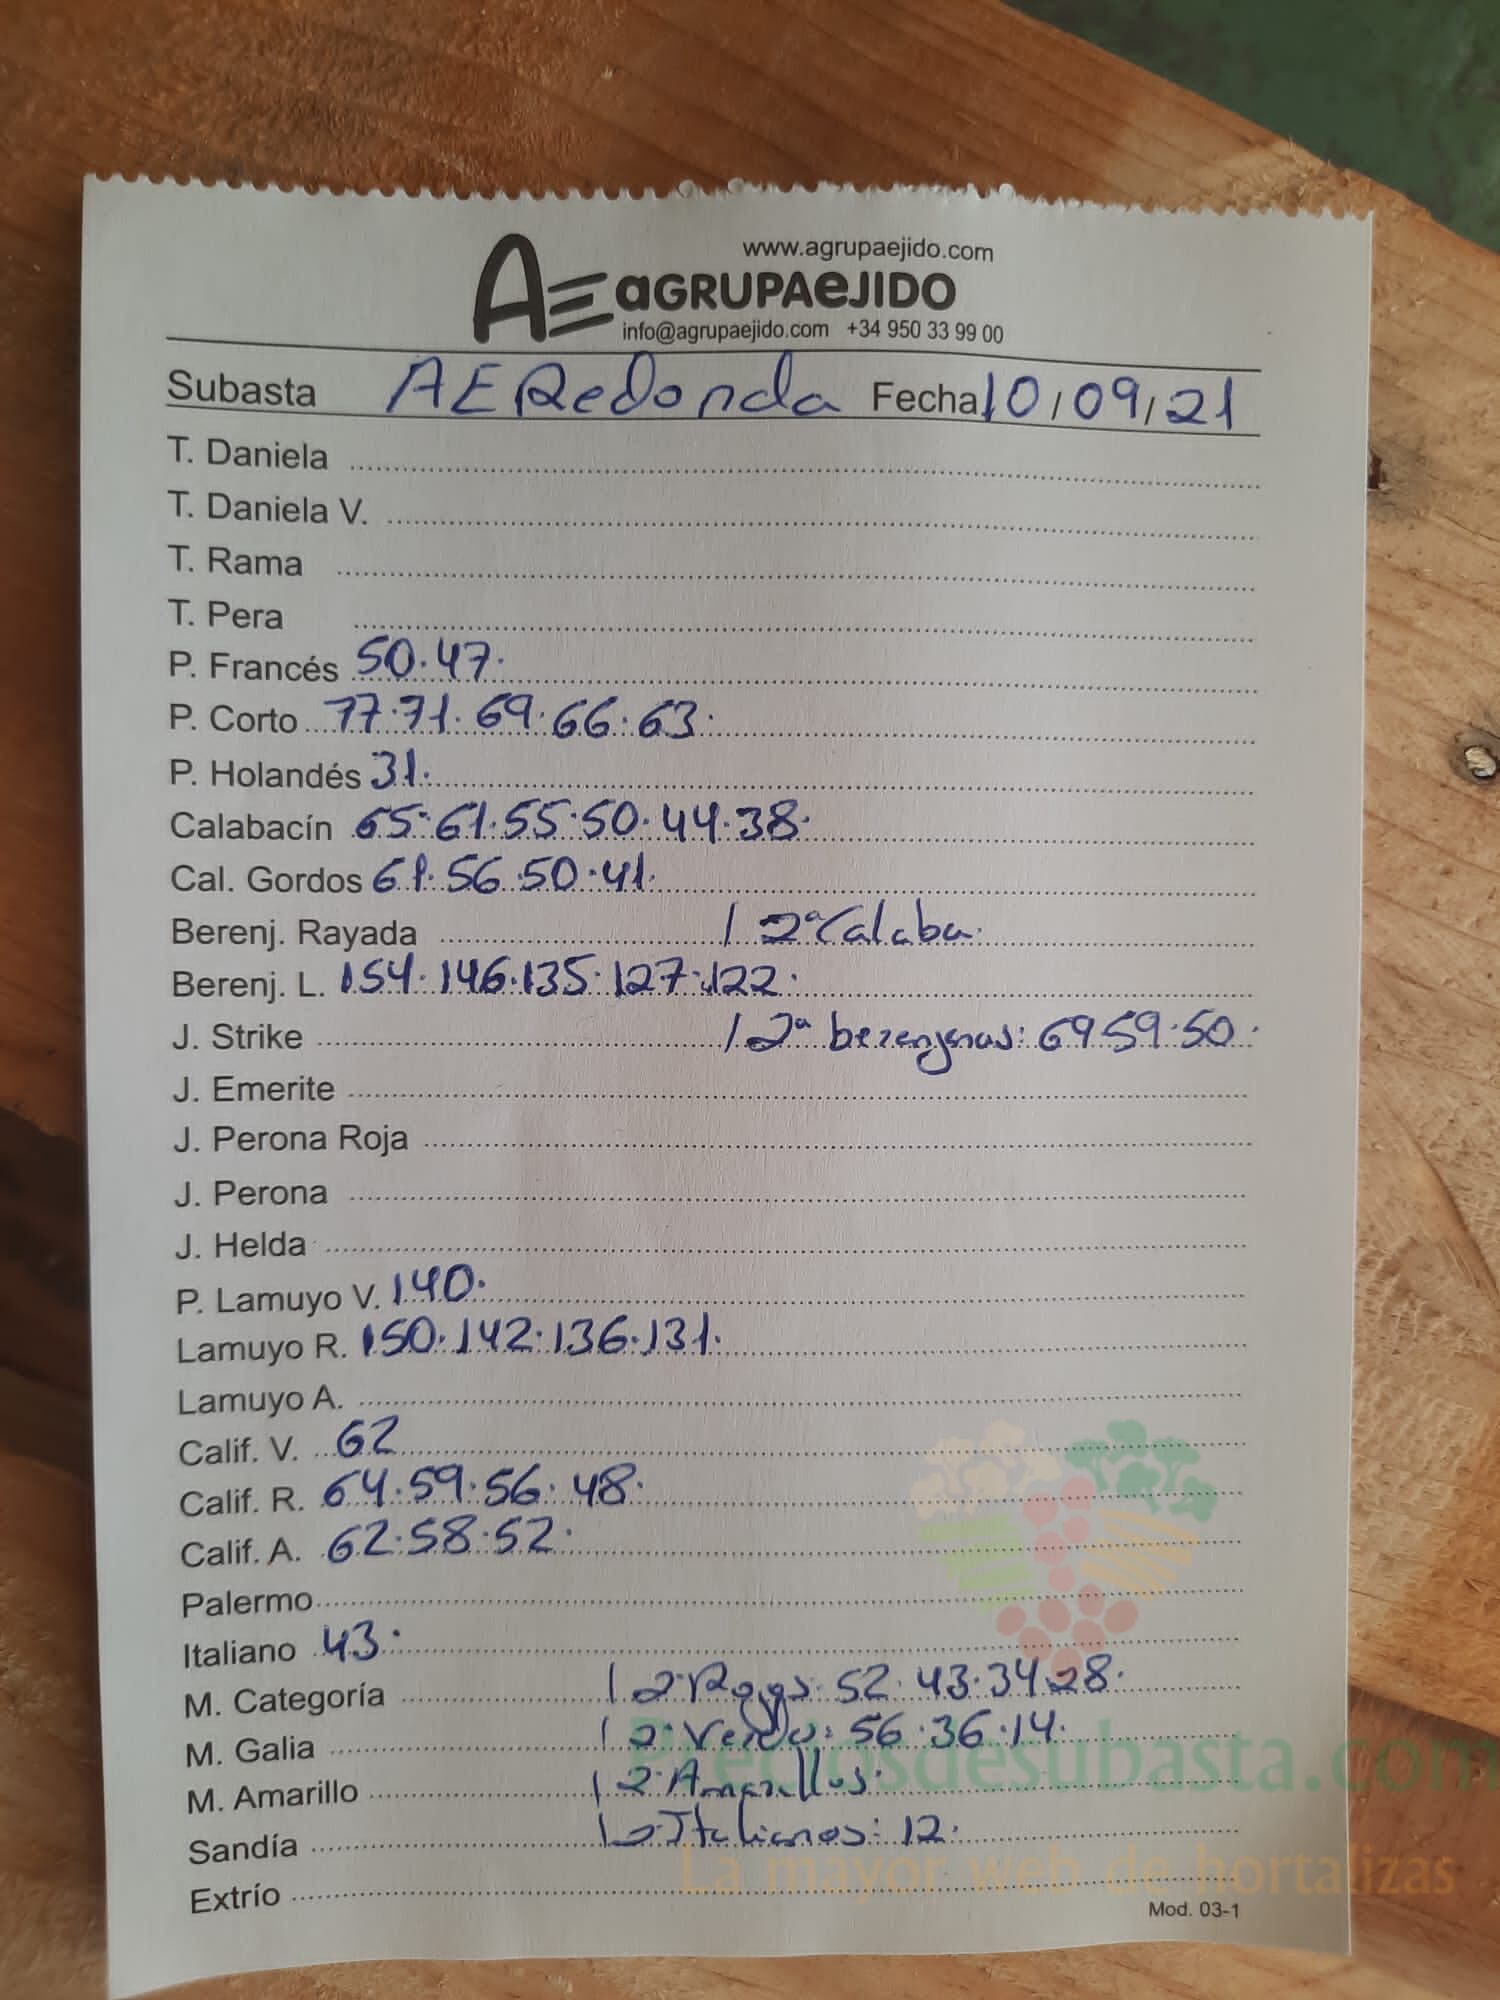 www.agrupaejido.com
AE AGRUPAEJIDO
info@agrupaejido.com +34 950 33 99 00
Subasta AE Redonda Fecha 10/09/21
T. Daniela
T. Daniela V.
T. Rama
T. Pera
P. Francés 50.47.
P. Corto 77.71.69.66.63.
P. Holandés 31.
Calabacín 65.61.55.50.44.38.
Cal. Gordos 61.56.50.41.
Berenj. Rayada / 2ª Calaba.
Berenj. L. 154.146.135.127.122.
J. Strike / 2ª berenjenas: 69.59.50.
J. Emerite
J. Perona Roja
J. Perona
J. Helda
P. Lamuyo V. 140.
Lamuyo R. 150.142.136.131.
Lamuyo A.
Calif. V. 62
Calif. R. 64.59.56.48.
Calif. A. 62.58.52.
Palermo
Italiano 43.
M. Categoría / 2ª Rojos: 52.43.34.28.
M. Galia / 2ª Verdes: 56.36.14.
M. Amarillo / 2ª Amarillos:
Sandía / 2ª Italianos: 12.
Extrío
Mod. 03-1
Preciosdesubasta.com
La mayor web de hortalizas